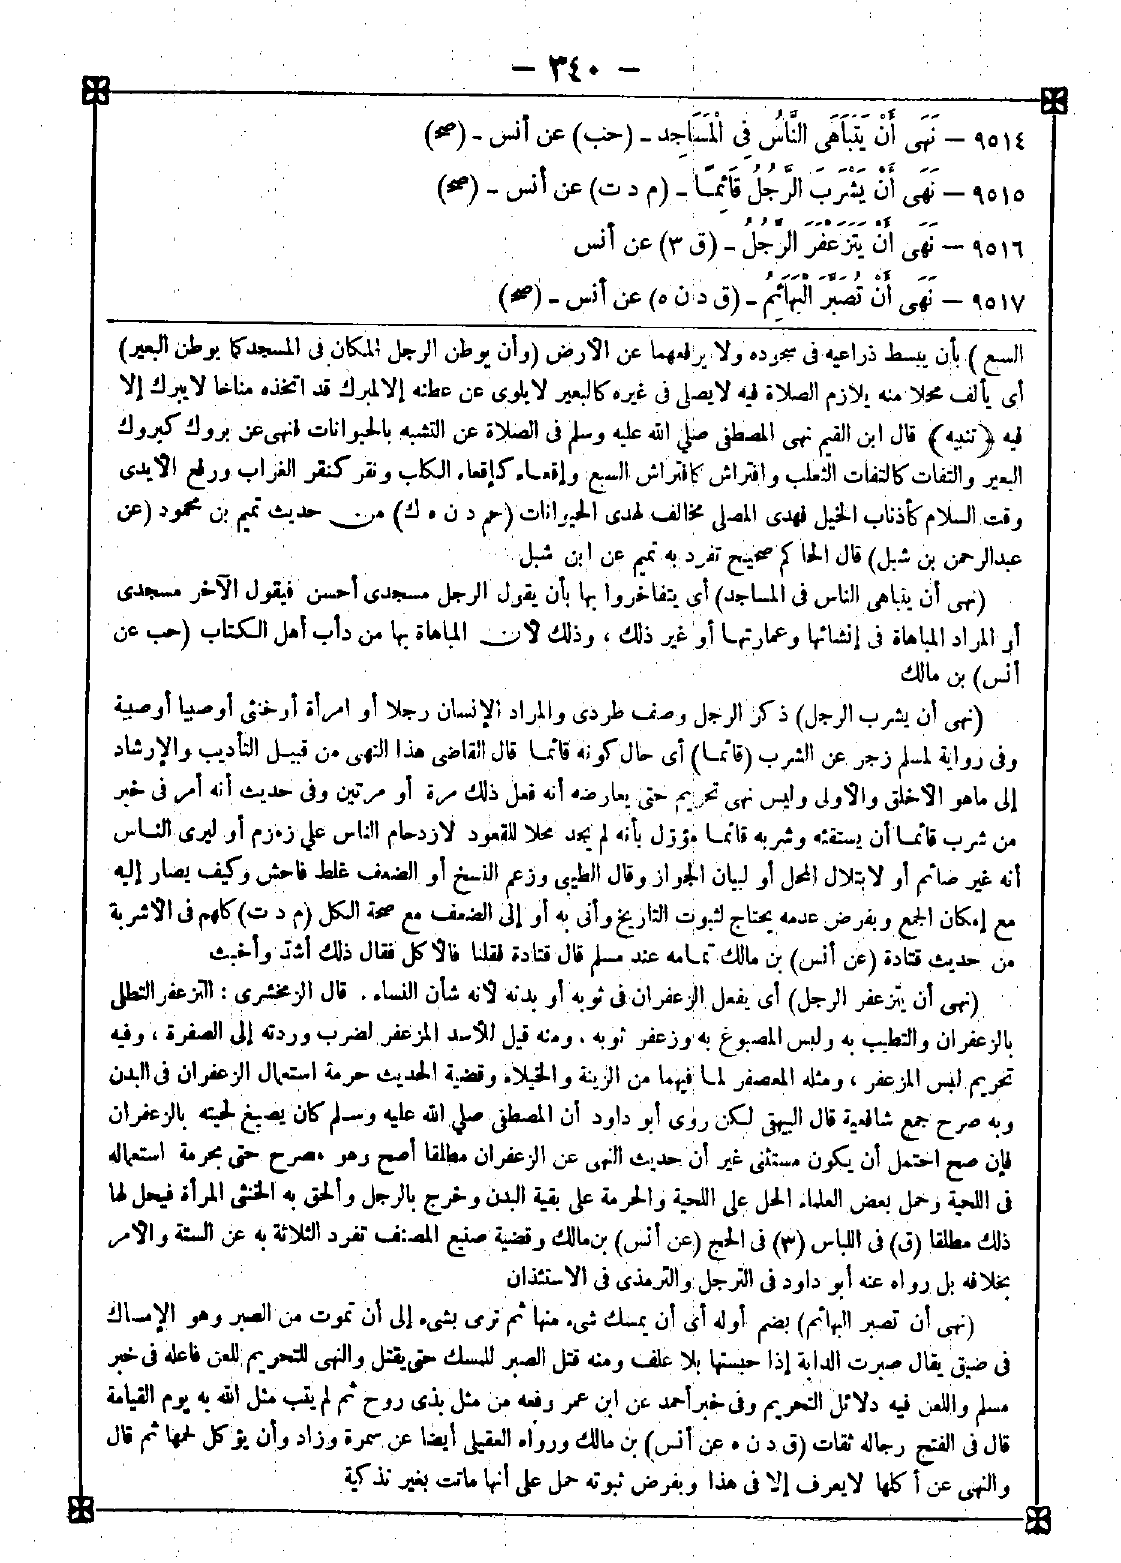 - ٣٤٠ -
٩٥١٤ - نَهَى أَنْ يَتَبَاهَى النَّاسُ فِى الْمَسَاجِد - (حب) عن أنس - (صح)
٩٥١٥ - نَهَى أَنْ يَشْرَبَ الرَّجُلُ قَائِمًا - (م د ت) عن أنس - (صح)
٩٥١٦ - نَهَى أَنْ يَتَزَعْفَرَ الرَّجُلُ - (ق ٣) عن أنس
٩٥١٧ - نَهَى أَنْ تُصَبَّرَ الْبَهَائِمُ - (ق د ن ه) عن أنس - (صح)
السبع) بأن يبسط ذراعيه فى سجوده ولا يرفعهما عن الأرض (وأن يوطن الرجل المكان فى المسجد كما يوطن البعير)
أى يألف محلا منه يلازم الصلاة فيه لا يصلى فى غيره كالبعير لا يلوى عن عطنه إلا لمبرك قد اتخذه مناخا لا يبرك إلا
فيه ﴿تنبيه﴾ قال ابن القيم نهى المصطفى صلي الله عليه وسلم فى الصلاة عن التشبه بالحيوانات فنهى عن بروك كبروك
البعير والتفات كالتفات الثعلب وافتراش كافتراش السبع وإقعاء كإقعاء الكلب ونقر كنقر الغراب ورفع الأيدى
وقت السلام كأذناب الخيل فهدى المصلى مخالف لهدى الحيوانات (حم د ن ه ك) من حديث تميم بن محمود (عن
عبدالرحمن بن شبل) قال الحاكم صحيح تفرد به تميم عن ابن شبل
(نهى أن يتباهى الناس فى المساجد) أى يتفاخروا بها بأن يقول الرجل مسجدى أحسن فيقول الآخر مسجدى
أو المراد المباهاة فى إنشائها وعمارتها أو غير ذلك ، وذلك لأن المباهاة بها من دأب أهل الكتاب (حب عن
أنس) بن مالك
(نهى أن يشرب الرجل) ذكر الرجل وصف طردى والمراد الإنسان رجلا أو امرأة أو خنثى أو صبيا أو صبية
وفى رواية لمسلم زجر عن الشرب (قائما) أى حال كونه قائما قال القاضى هذا النهى من قبيل التأديب والإرشاد
إلى ماهو الأخلق والأولى وليس نهى تحريم حتى يعارضه أنه فعل ذلك مرة أو مرتين وفى حديث أنه أمر فى خبر
من شرب قائما أن يستقئه وشربه قائما مؤول بأنه لم يجد محلا للقعود لازدحام الناس علي زمزم أو ليرى الناس
أنه غير صائم أو لابتلال المحل أو لبيان الجواز وقال الطيبى وزعم النسخ أو الضعف غلط فاحش وكيف يصار إليه
مع إمكان الجمع وبفرض عدمه يحتاج لثبوت التاريخ وأنى به أو إلى الضعف مع صحة الكل (م د ت) كلهم فى الأشربة
من حديث قتادة (عن أنس) بن مالك تمامه عند مسلم قال قتادة فقلنا فالأكل فقال ذلك أشدّ وأخبث
(نهى أن يتزعفر الرجل) أى يفعل الزعفران فى ثوبه أو بدنه لأنه شأن النساء . قال الزمخشرى : التزعفر التطلى
بالزعفران والتطيب به ولبس المصبوغ به وزعفر ثوبه . ومنه قيل للأسد المزعفر لضرب وردته إلى الصفرة ، وفيه
تحريم لبس المزعفر ، ومثله المعصفر لما فيهما من الزينة والخيلاء وقضية الحديث حرمة استعمال الزعفران فى البدن
وبه صرح جمع شافعية قال البيهقى لكن روى أبو داود أن المصطفى صلي الله عليه وسلم كان يصبغ لحيته بالزعفران
فإن صح احتمل أن يكون مستثنى غير أن حديث النهى عن الزعفران مطلقا أصح وهو مصرح حتى بحرمة استعماله
فى اللحية وحمل بعض العلماء الحل علي اللحية والحرمة على بقية البدن وخرج بالرجل وألحق به الخنثى المرأة فيحل لها
ذلك مطلقا (ق) فى اللباس (٣) فى الحج (عن أنس) بن مالك وقضية صنيع المصنف تفرد الثلاثة به عن الستة والأمر
بخلافه بل رواه عنه أبو داود فى الترجل والترمذى فى الاستئذان
(نهى أن تصبر البهائم) بضم أوله أى أن يمسك شىء منها ثم ترى بشىء إلى أن تموت من الصبر وهو الإمساك
فى ضيق يقال صبرت الدابة إذا حبستها بلا علف ومنه قتل الصبر للمسك حتى يقتل والنهى للتحريم للعن فاعله فى خبر
مسلم واللعن فيه دلائل التحريم وفى خبر أحمد عن ابن عمر رفعه من مثل بذى روح ثم لم يتب مثل الله به يوم القيامة
قال فى الفتح رجاله ثقات (ق د ن ه عن أنس) بن مالك ورواه العقيلى أيضا عن سمرة وزاد وأن يؤكل لحمها ثم قال
والنهى عن أكلها لا يعرف إلا فى هذا وبفرض ثبوته حمل على أنها ماتت بغير تذكية